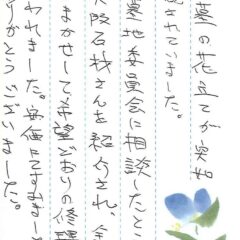 墓の花立てが突然
されていました。
墓地委員会に相談したとこ
大阪石材さんを紹介され、全
まかせして希望どおりの修理
われました。安価ですみ
りがとうございました。